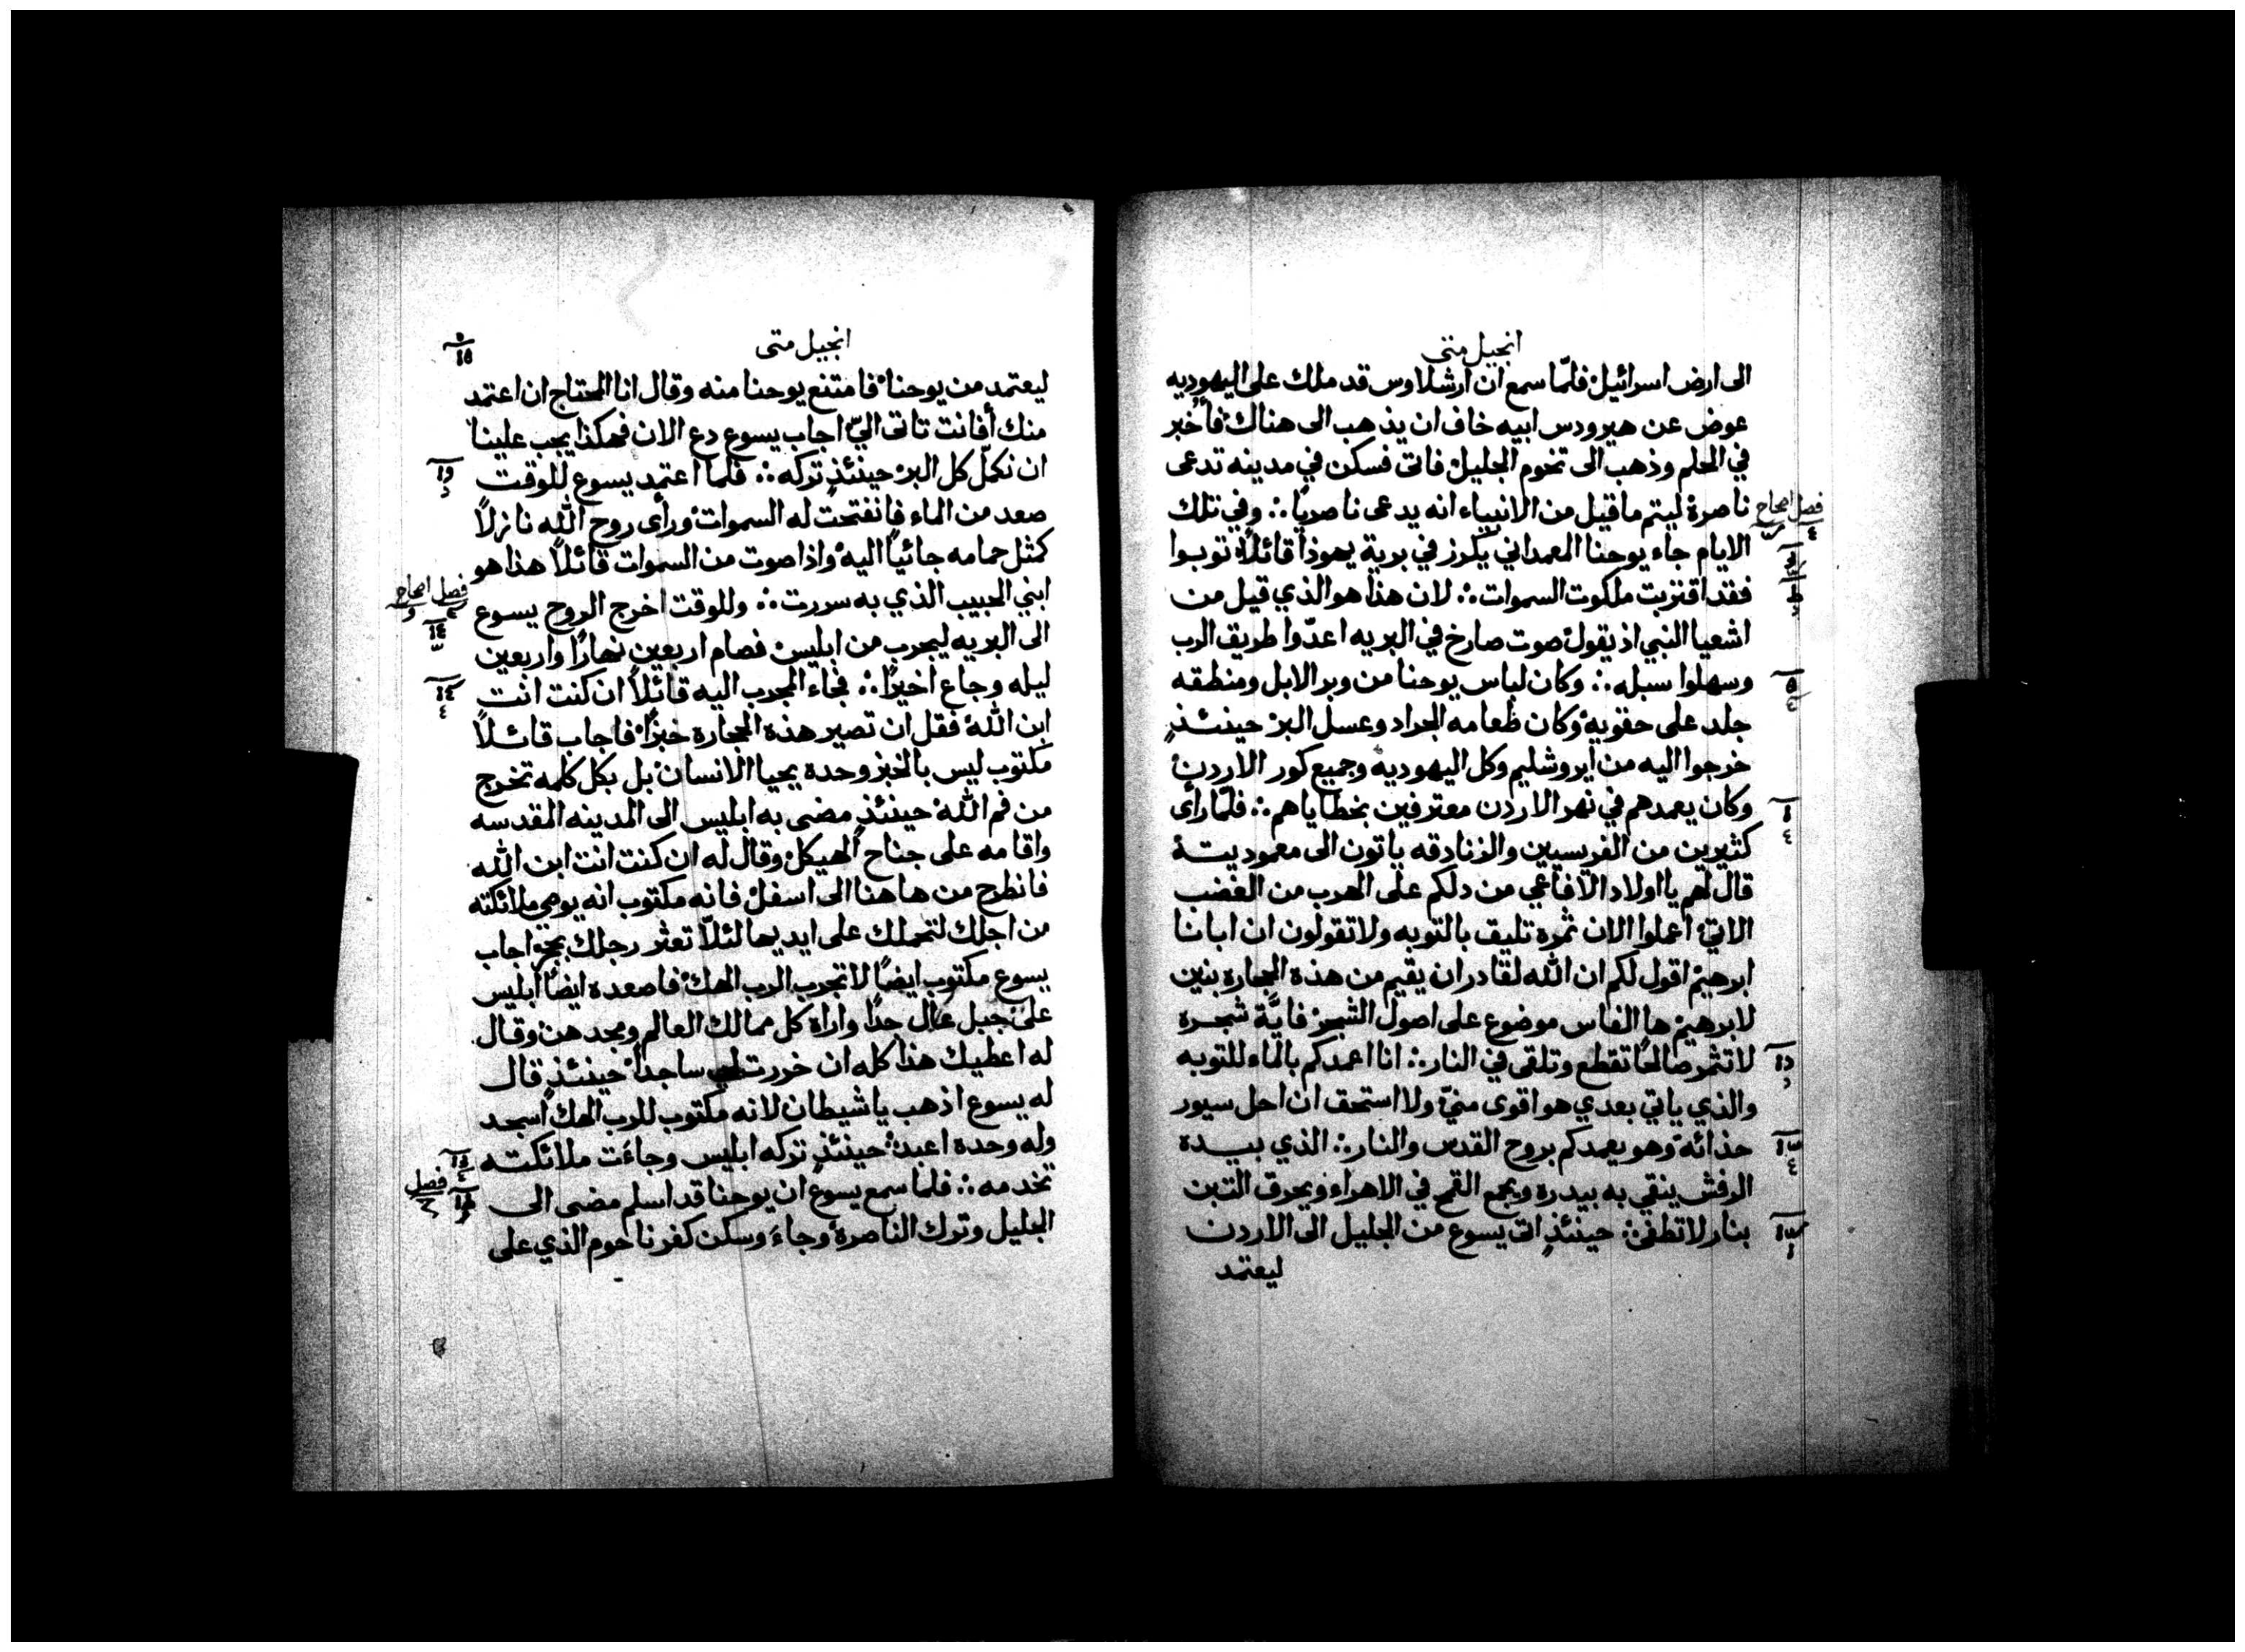 انجيل متى
الى ارض اسرائيل فلمّا سمع ان ارشلاوس قد ملك على اليهوديه
عوض عن هيرودس ابيه خاف ان يذهب الى هناك فأخبر
في الحلم وذهب الى تخوم الجليل فاتى فسكن في مدينه تدعى
ناصرة ليتم ما قيل من الانبياء انه يدعى ناصريًا ∴ وفي تلك
فصل اصحاح
الايام جاء يوحنا المعمداني يكرز في برية يهوذا قائلًا توبوا
فقد اقتربت ملكوت السموات ∴ لان هذا هو الذي قيل من
اشعيا النبي اذ يقول صوت صارخ في البريه اعدّوا طريق الرب
وسهلوا سبله ∴ وكان لباس يوحنا من وبر الابل ومنطقه
جلد على حقويه وكان طعامه الجراد وعسل البر حينئذٍ
خرجوا اليه من ايروشليم وكل اليهوديه وجميع كور الاردن
وكان يعمدهم في نهر الاردن معترفين بخطاياهم ∴ فلمّا رأى
كثيرين من الفريسيين والزنادقه ياتون الى معموديتة
قال لهم يا اولاد الافاعي من دلكم على الهرب من الغضب
الاتي اعملوا الان ثمرة تليق بالتوبه ولا تقولون ان ابانا
ابرهيم اقول لكم ان الله لقادر ان يقيم من هذة الحجاره بنين
لابرهيم ها الفاس موضوع على اصول الشجر فايَّة شجرة
لا تثمر صالحًا تقطع وتلقى في النار ∴ انا اعمدكم بالماء للتوبه
والذي ياتي بعدي هو اقوى منّي ولا استحق ان احل سيور
حذائة وهو يعمدكم بروح القدس والنار ∴ الذي بيدة
الرفش ينقي به بيدره ويجمع القمح في الاهراء ويحرق التبن
بنار لا تطفئ ∴ حينئذٍ اتى يسوع من الجليل الى الاردن
ليعتمد
انجيل متى
ليعتمد من يوحنا فامتنع يوحنا منه وقال انا المحتاج ان اعتمد
منك أفانت تاتى اليّ اجاب يسوع دع الان فهكذا يجب علينا
ان نكمّل كل البر حينئذٍ تركه ∴ فلما اعتمد يسوع للوقت
صعد من الماء فانفتحت له السموات ورأى روح الله نازلًا
كمثل حمامه جائيًا اليه واذا صوت من السموات قائلًا هذا هو
فصل اصحاح
ابني الحبيب الذي به سررت ∴ وللوقت اخرج الروح يسوع
الى البريه ليجرب من ابليس فصام اربعين نهارًا واربعين
ليله وجاع اخيرًا ∴ فجاء المجرب اليه قائلًا ان كنت انت
ابن الله فقل ان تصير هذة الحجارة خبزًا فاجاب قائلًا
مكتوب ليس بالخبز وحدة يحيا الانسان بل بكل كلمه تخرج
من فم الله حينئذٍ مضى به ابليس الى المدينه المقدسه
واقامه على جناح الهيكل وقال له ان كنت انت ابن الله
فانطرح من هاهنا الى اسفل فانه مكتوب انه يوصي ملائكته
من اجلك لتحملك على ايديها لئلّا تعثر رجلك بحجر اجاب
يسوع مكتوب ايضًا لا تجرب الرب الهك فاصعدة ايضًا ابليس
على جبل عال جدًا واراة كل ممالك العالم ومجدهن وقال
له اعطيك هذا كله ان خررت لي ساجدًا حينئذٍ قال
له يسوع اذهب يا شيطان لانه مكتوب للرب الهك اسجد
وله وحدة اعبد حينئذٍ تركه ابليس وجاءَت ملائكته
تخدمه ∴ فلما سمع يسوع ان يوحنا قد اسلم مضى الى
فصل
الجليل وترك الناصرة وجاءَ وسكن كفرناحوم الذي على